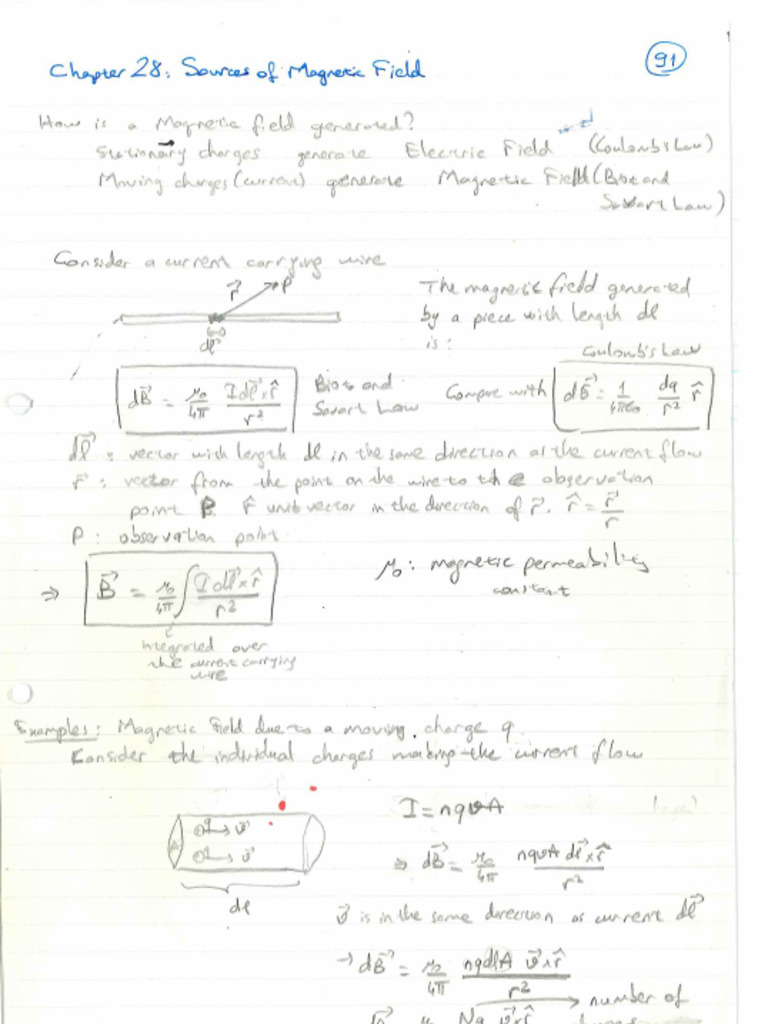 91
Chapter 28: Sources of Magnetic Field
How is a Magnetic field generated?
Stationary charges generate Electric Field (Coulomb's Law)
Moving charges (current) generate Magnetic Field (Biot and
Savart Law)
Consider a current carrying wire
r⃗ P
dl⃗
The magnetic field generated
by a piece with length dl
is:
Coulomb's Law
dB⃗ = μ₀/4π I dl⃗ x r̂ / r²
Biot and
Savart Law
Compare with
dE⃗ = 1/4πε₀ dq/r² r̂
dl⃗ : vector with length dl in the same direction as the current flow
r⃗ : vector from the point on the wire to the observation
point P. r̂ unit vector in the direction of r⃗. r̂ = r⃗/r
P : observation point
⇒ B⃗ = μ₀/4π ∫ I dl⃗ x r̂ / r²
μ₀ : magnetic permeability
constant
integrated over
the current carrying
wire
Examples: Magnetic Field due to a moving charge q.
Consider the individual charges making the current flow
I = nqvA
q → v⃗
q → v⃗
dl
⇒ dB⃗ = μ₀/4π nqvA dl⃗ x r̂ / r²
v⃗ is in the same direction as current dl⃗
→ dB⃗ = μ₀/4π nqdlA v⃗ x r̂ / r²
→ number of
Nq v⃗ x r̂